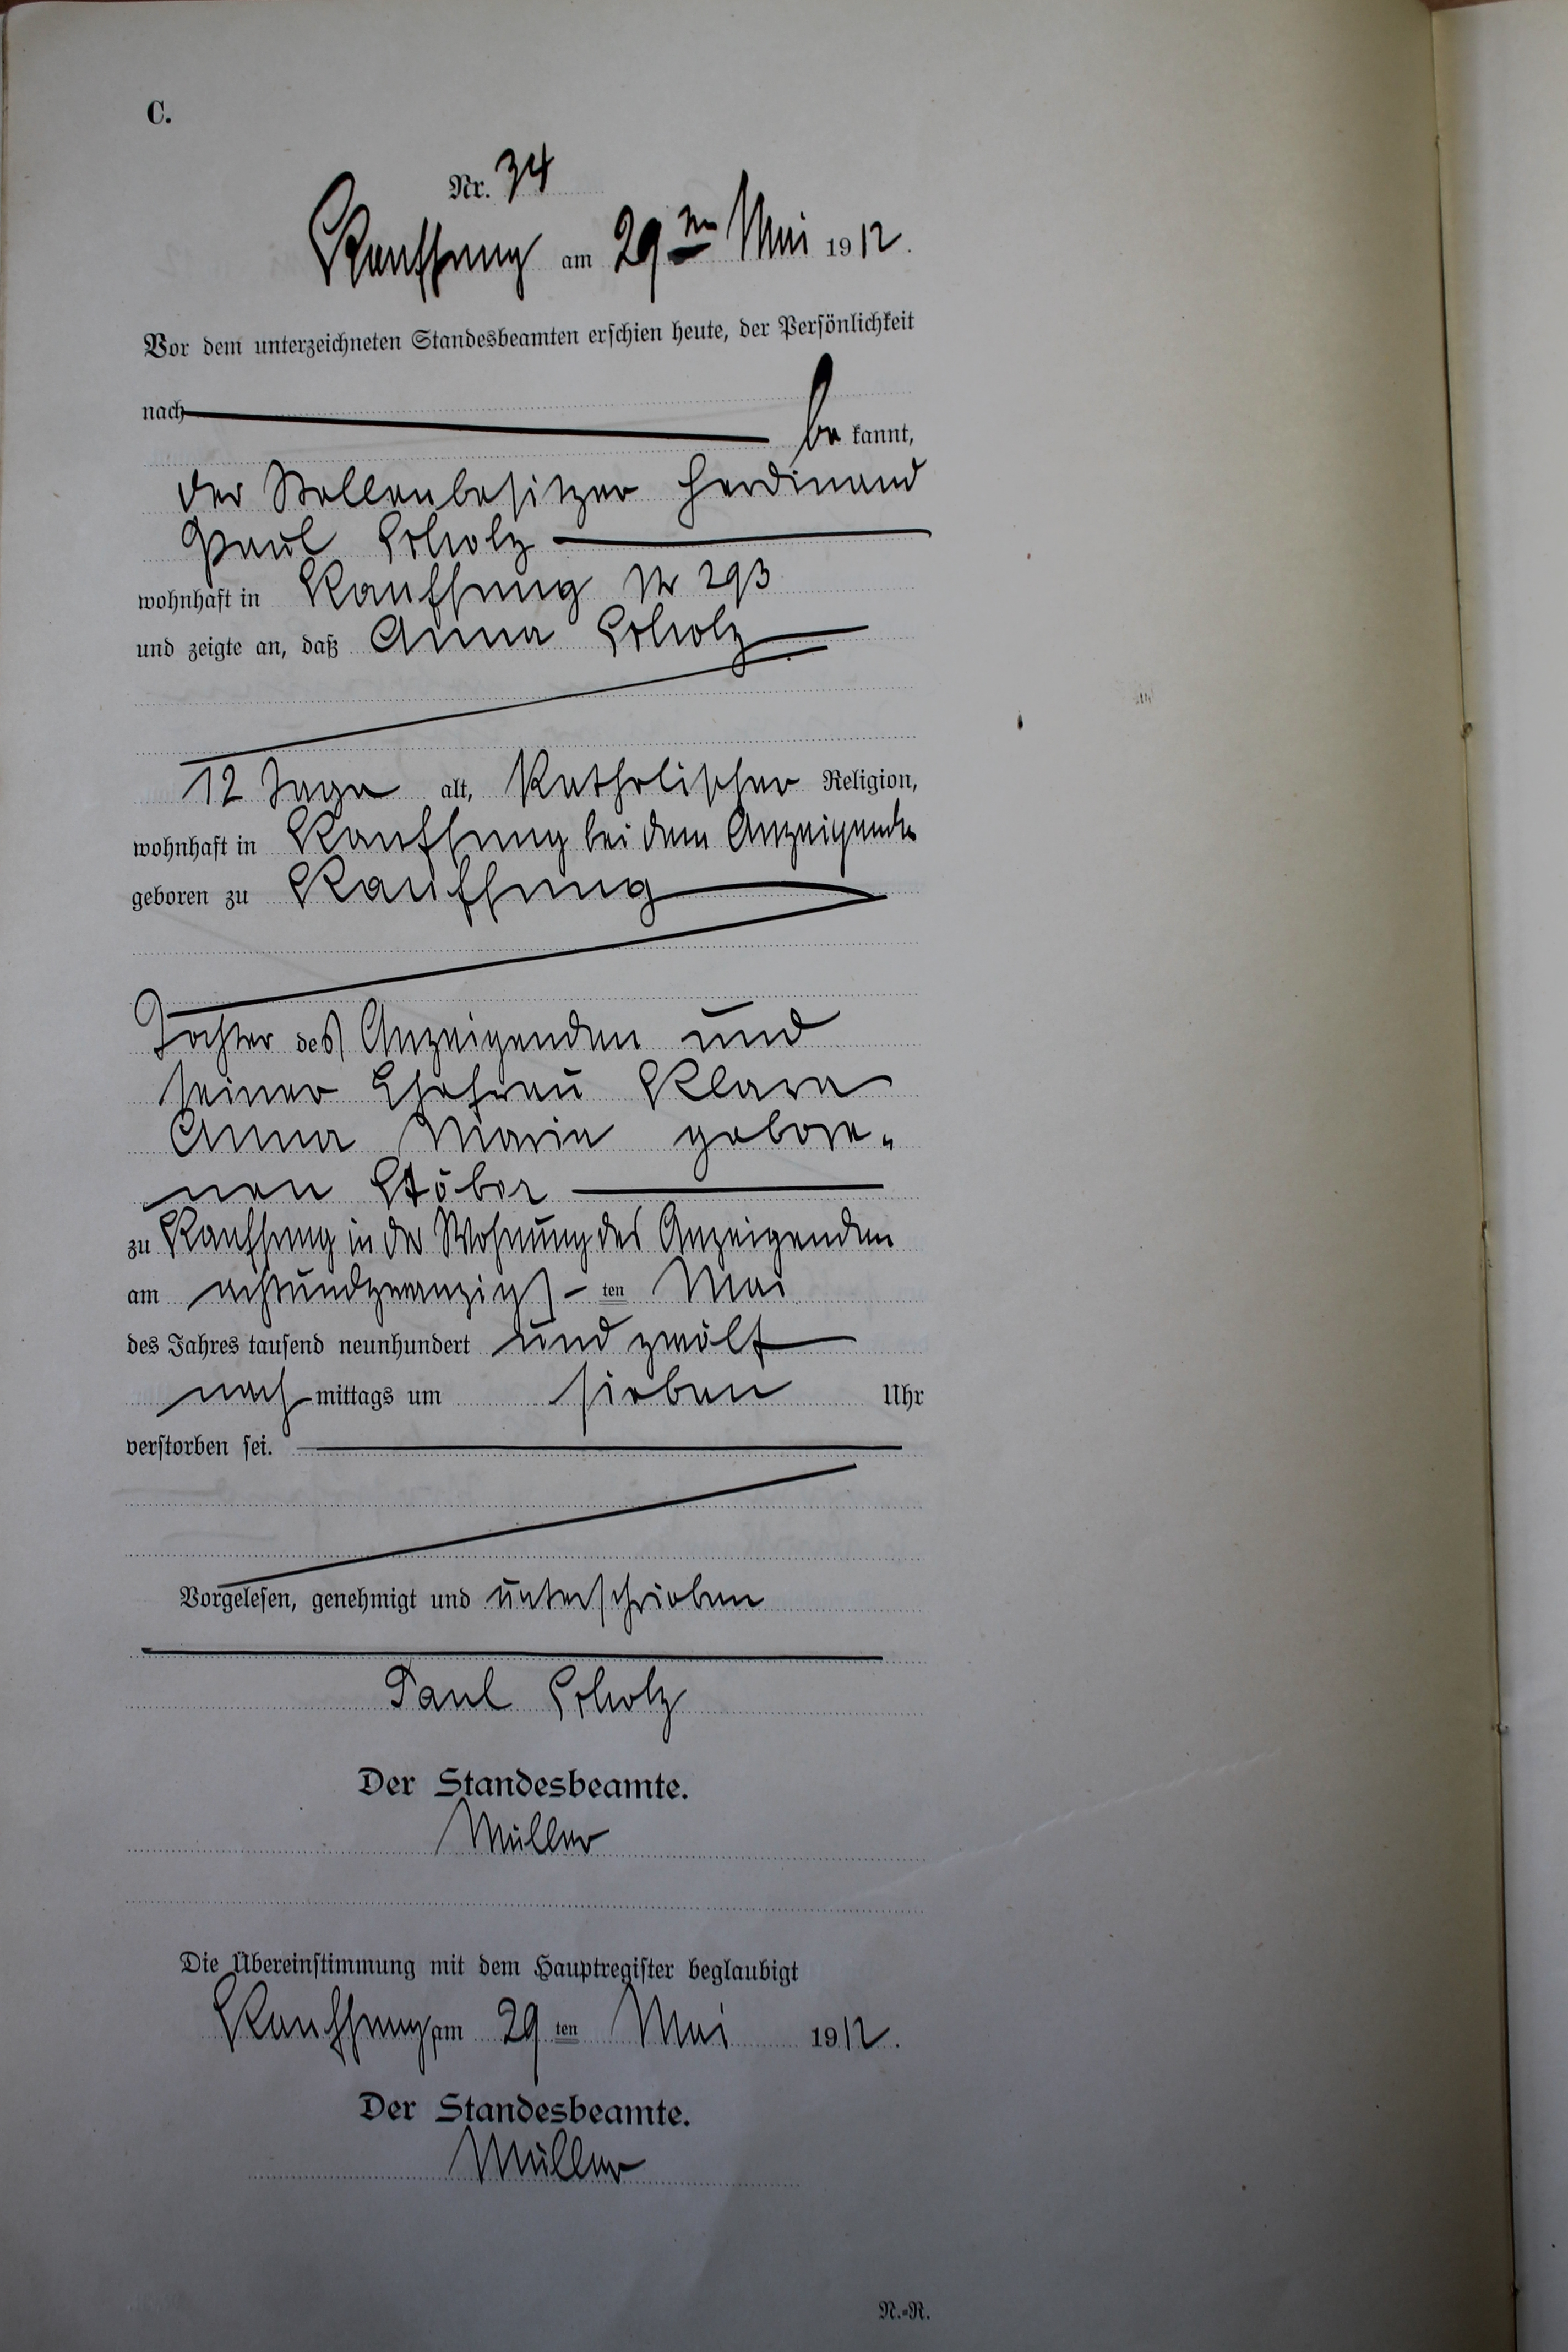 C.
Nr. 34
Kauffung am 29ten Mai 1912.
Vor dem unterzeichneten Standesbeamten erschien heute, der Persönlichkeit
nach
be kannt,
der Stellenbesitzer Ferdinand
Paul Scholz
wohnhaft in Kauffung Nr 293
und zeigte an, daß Anna Scholz
12 Tage alt, Katholischer Religion,
wohnhaft in Kauffung bei dem Anzeigenden
geboren zu Kauffung
Tochter des Anzeigenden und
seiner Ehefrau Klara
Anna Maria gebore-
nen Stöber
zu Kauffung in der Wohnung des Anzeigenden
am achtundzwanzigs-ten Mai
des Jahres tausend neunhundert und zwölf
nach mittags um sieben Uhr
verstorben sei.
Vorgelesen, genehmigt und unterschrieben
Paul Scholz
Der Standesbeamte.
Müller
Die Übereinstimmung mit dem Hauptregister beglaubigt
Kauffung am 29 ten Mai 1912.
Der Standesbeamte.
Müller
N.=R.